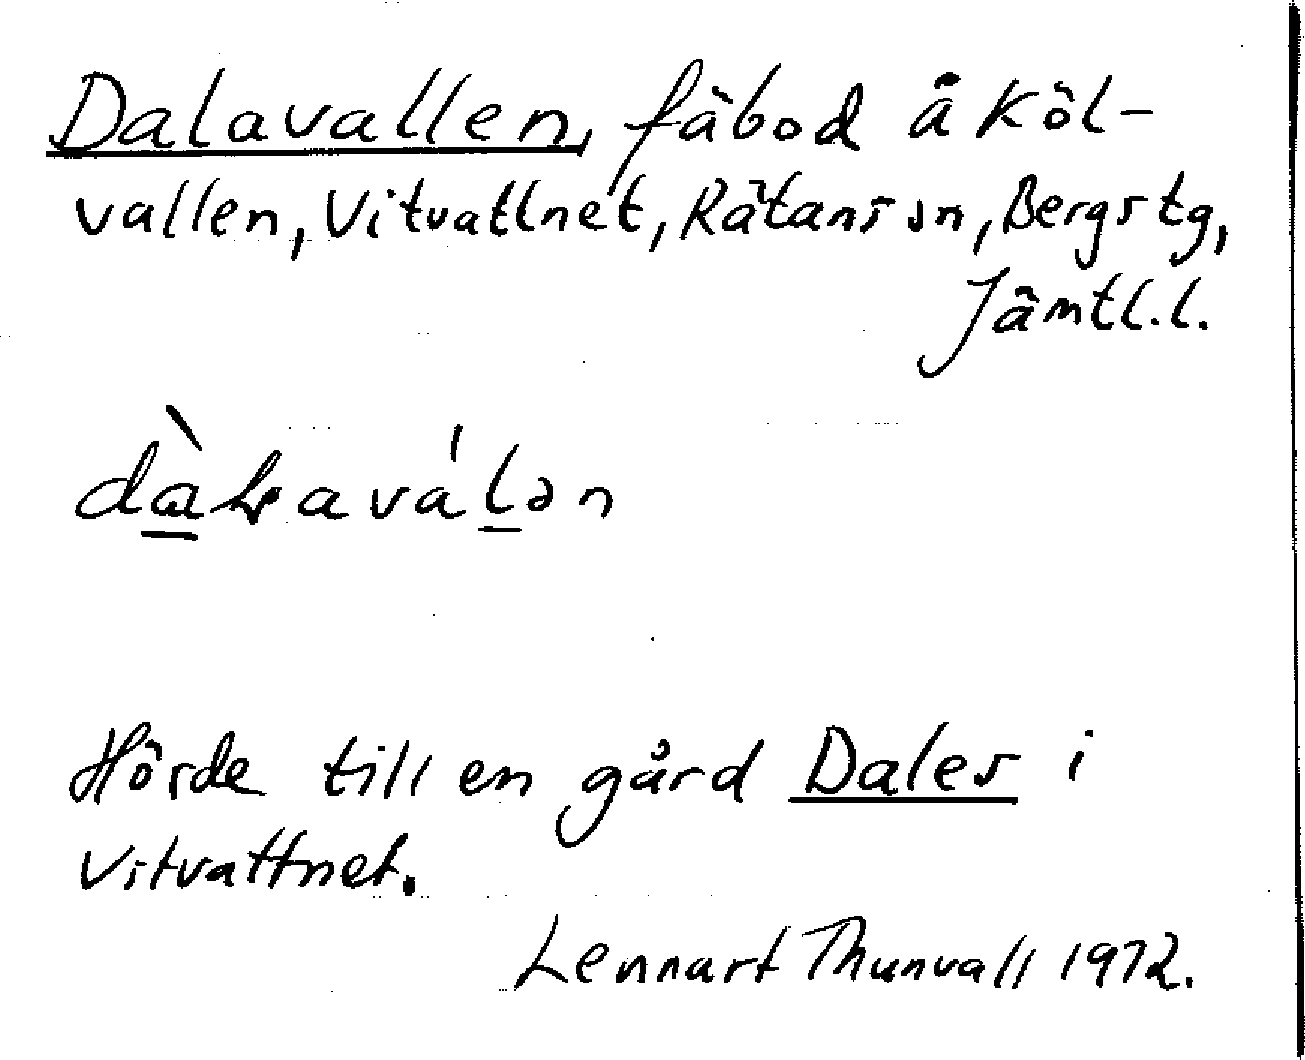 Dalavallen, fäbod å Köl-
vallen, Vitvattnet, Rätans sn, Bergs tg,
Jämtl.l.
dàɽavá'lən
Hörde till en gård Dales i
Vitvattnet.
Lennart Thunvall 1972.